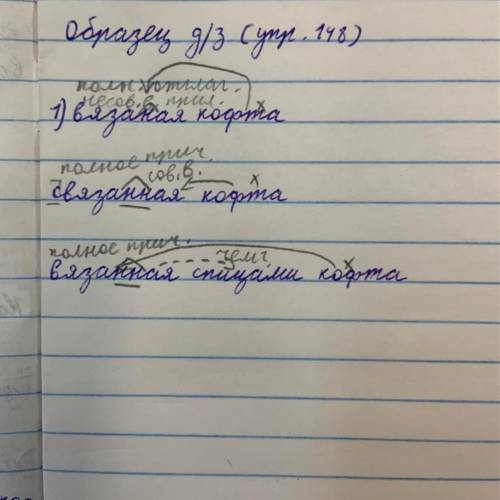 Образец д/з (упр. 148)
полн. отглаг.
несов.в. прил. х
1) вязаная кофта
полное прич.
сов.в. х
связанная кофта
полное прич. чем? х
вязанная спицами кофта